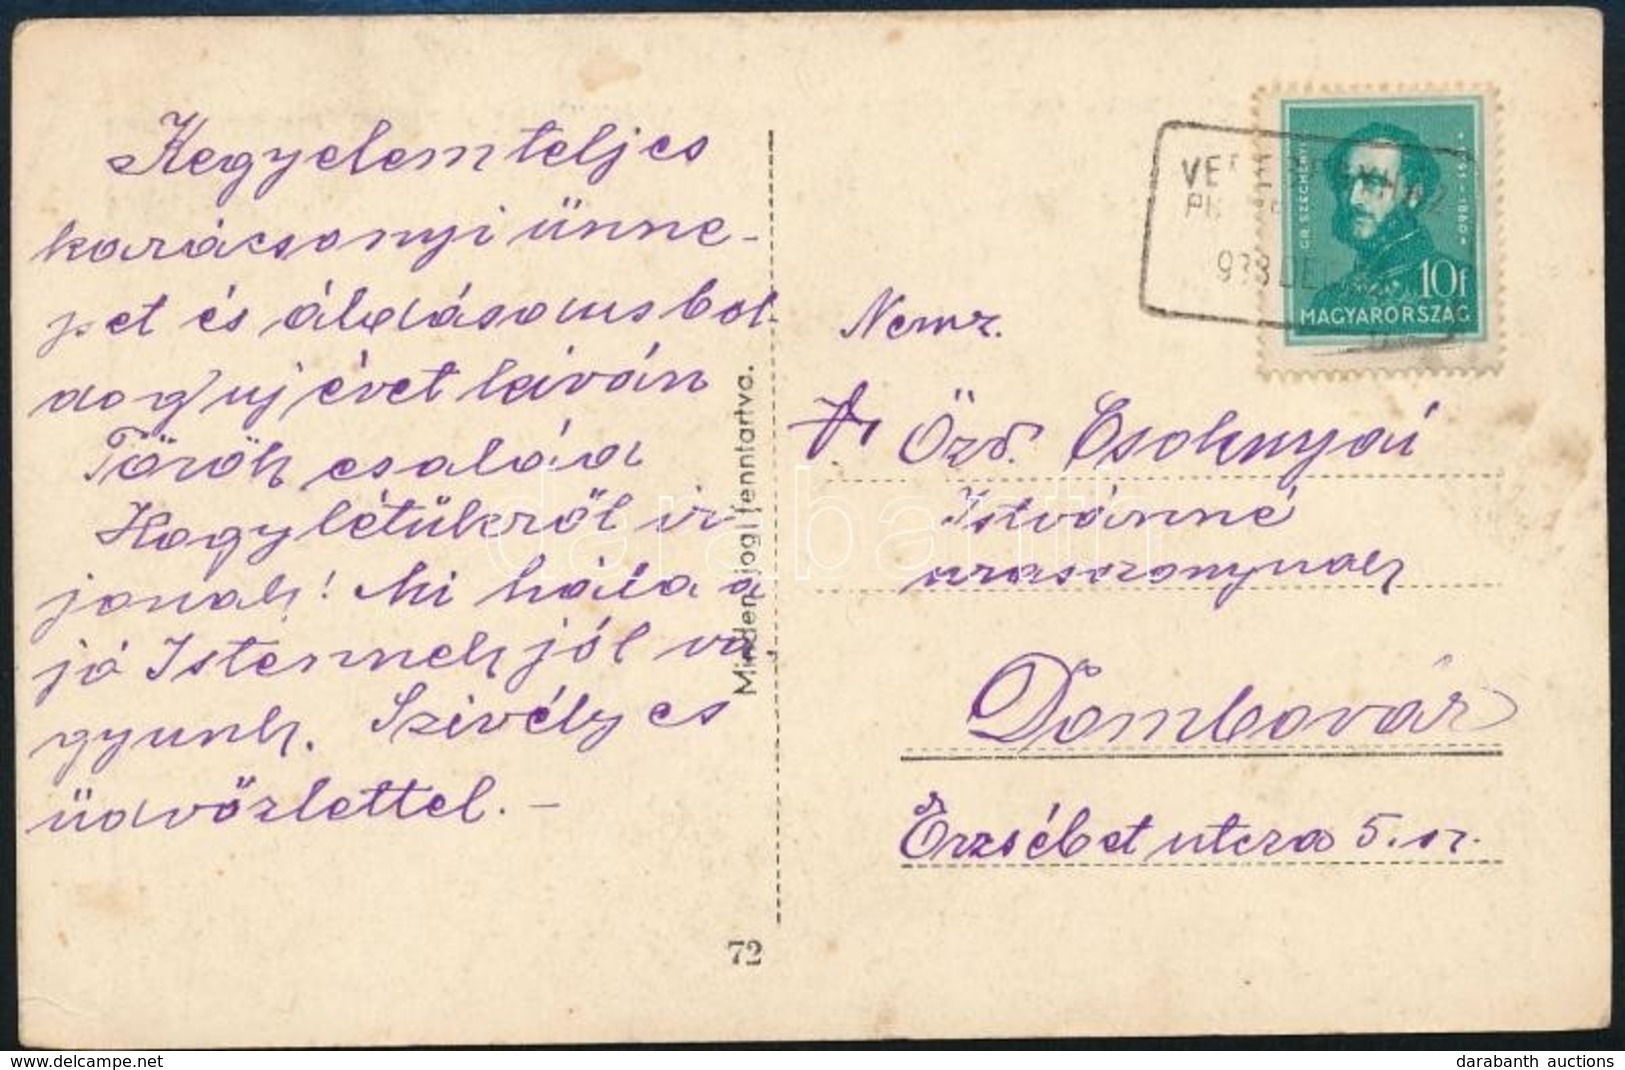 Kegyelemteljes
karácsonyi ünne-
pet és áldásous bol-
dog uj évet kiván
Török család
Hogylétükről ir-
janak! Mi hála a
jó Istennek jól va-
gyunk. Szivélyes
üdvözlettel. –
Minden jog fenntartva.
72
GR. SZÉCHENYI I. 1791-1860.
10f
MAGYARORSZÁG
938 DE
Nemz.
Dr Özv. Csoknyai
Istvánné
urasszonynak
Dombovár
Erzsébet utcza 5. sz.
darabanth
darabanth auctions